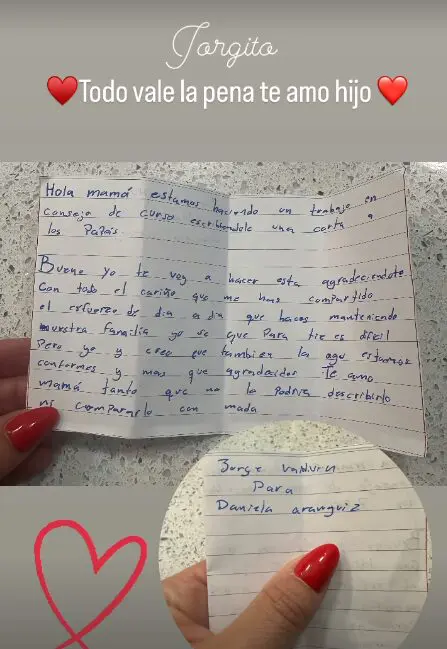 Jorgito
Todo vale la pena te amo hijo
Hola mamá estamos haciendo un trabajo en
consejo de curso escribiendole una carta a
los Papás
Bueno yo te voy a hacer esta agradeciendote
con todo el cariño que me has compartido
el esfuerzo de dia a dia que haces manteniendo
nuestra familia yo se que Para ti es dificil
Pero yo y creo que tambien la agu estamos
conformes y mas que agradecidos Te amo
mamá tanto que no lo Podria describirlo
ni compararlo con nada
Jorge valdivia
Para
Daniela aranguiz